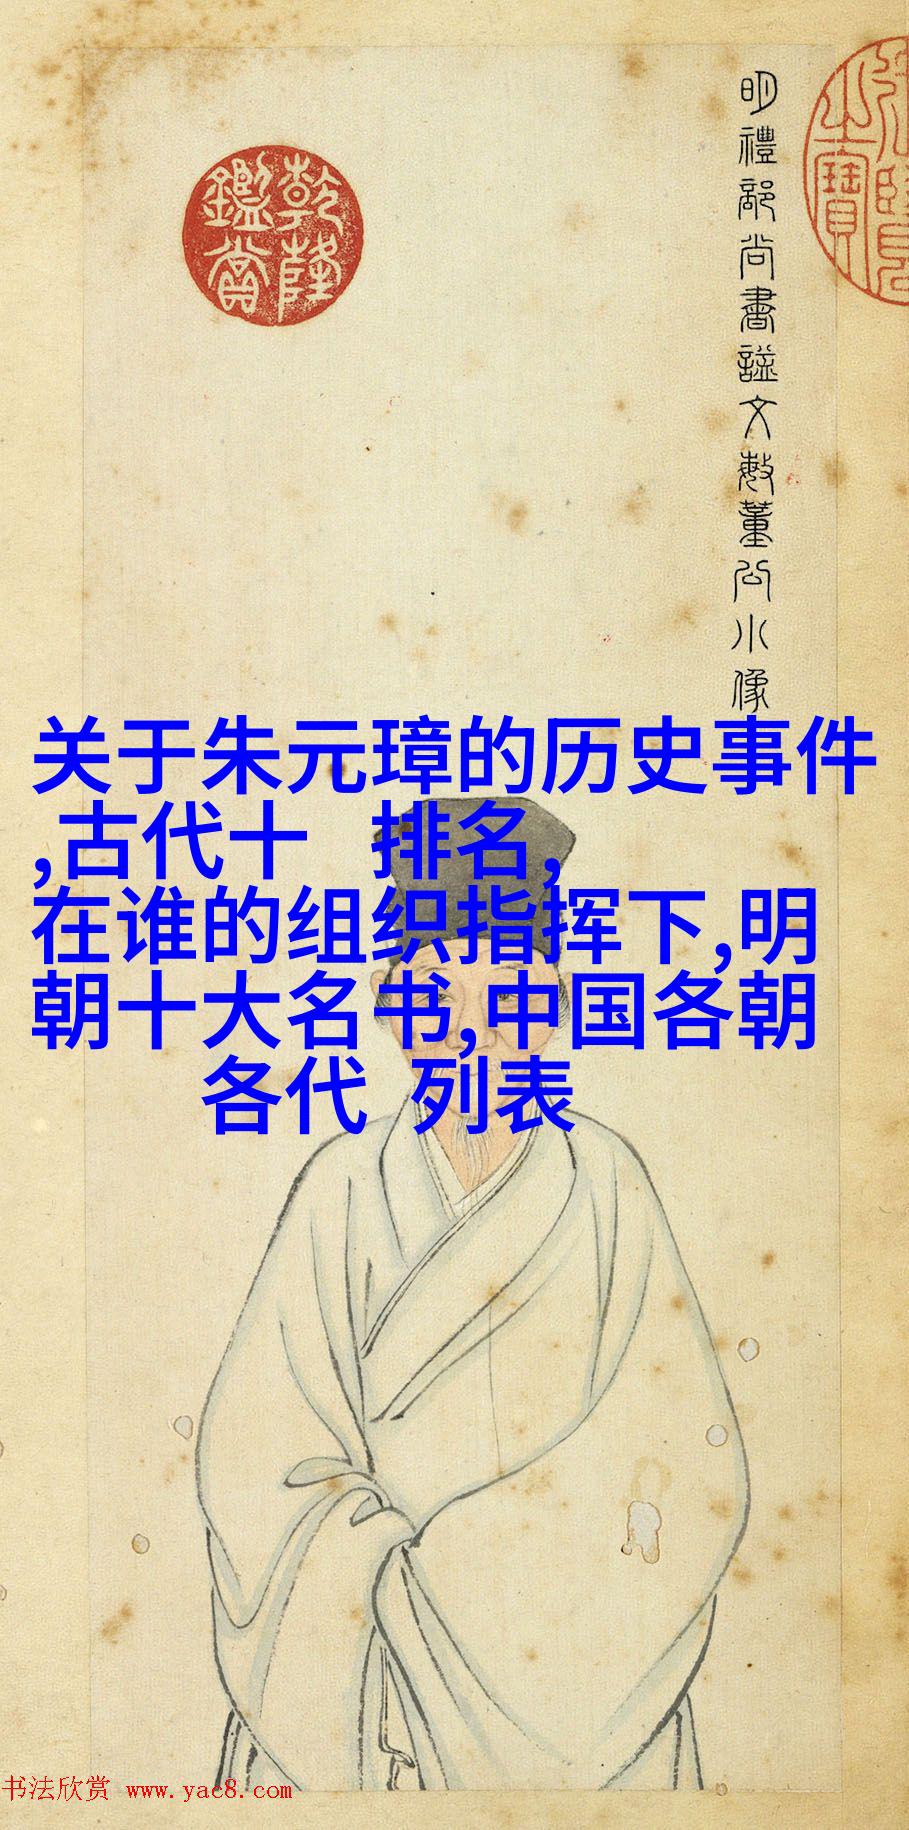 明禮部尚書謚文敏董公小像
乾隆
鑑賞
关于朱元璋的历史事件
,古代十 排名,
在谁的组织指挥下,明
朝十大名书,中国各朝
各代 列表
书法欣赏 www.yac8.com